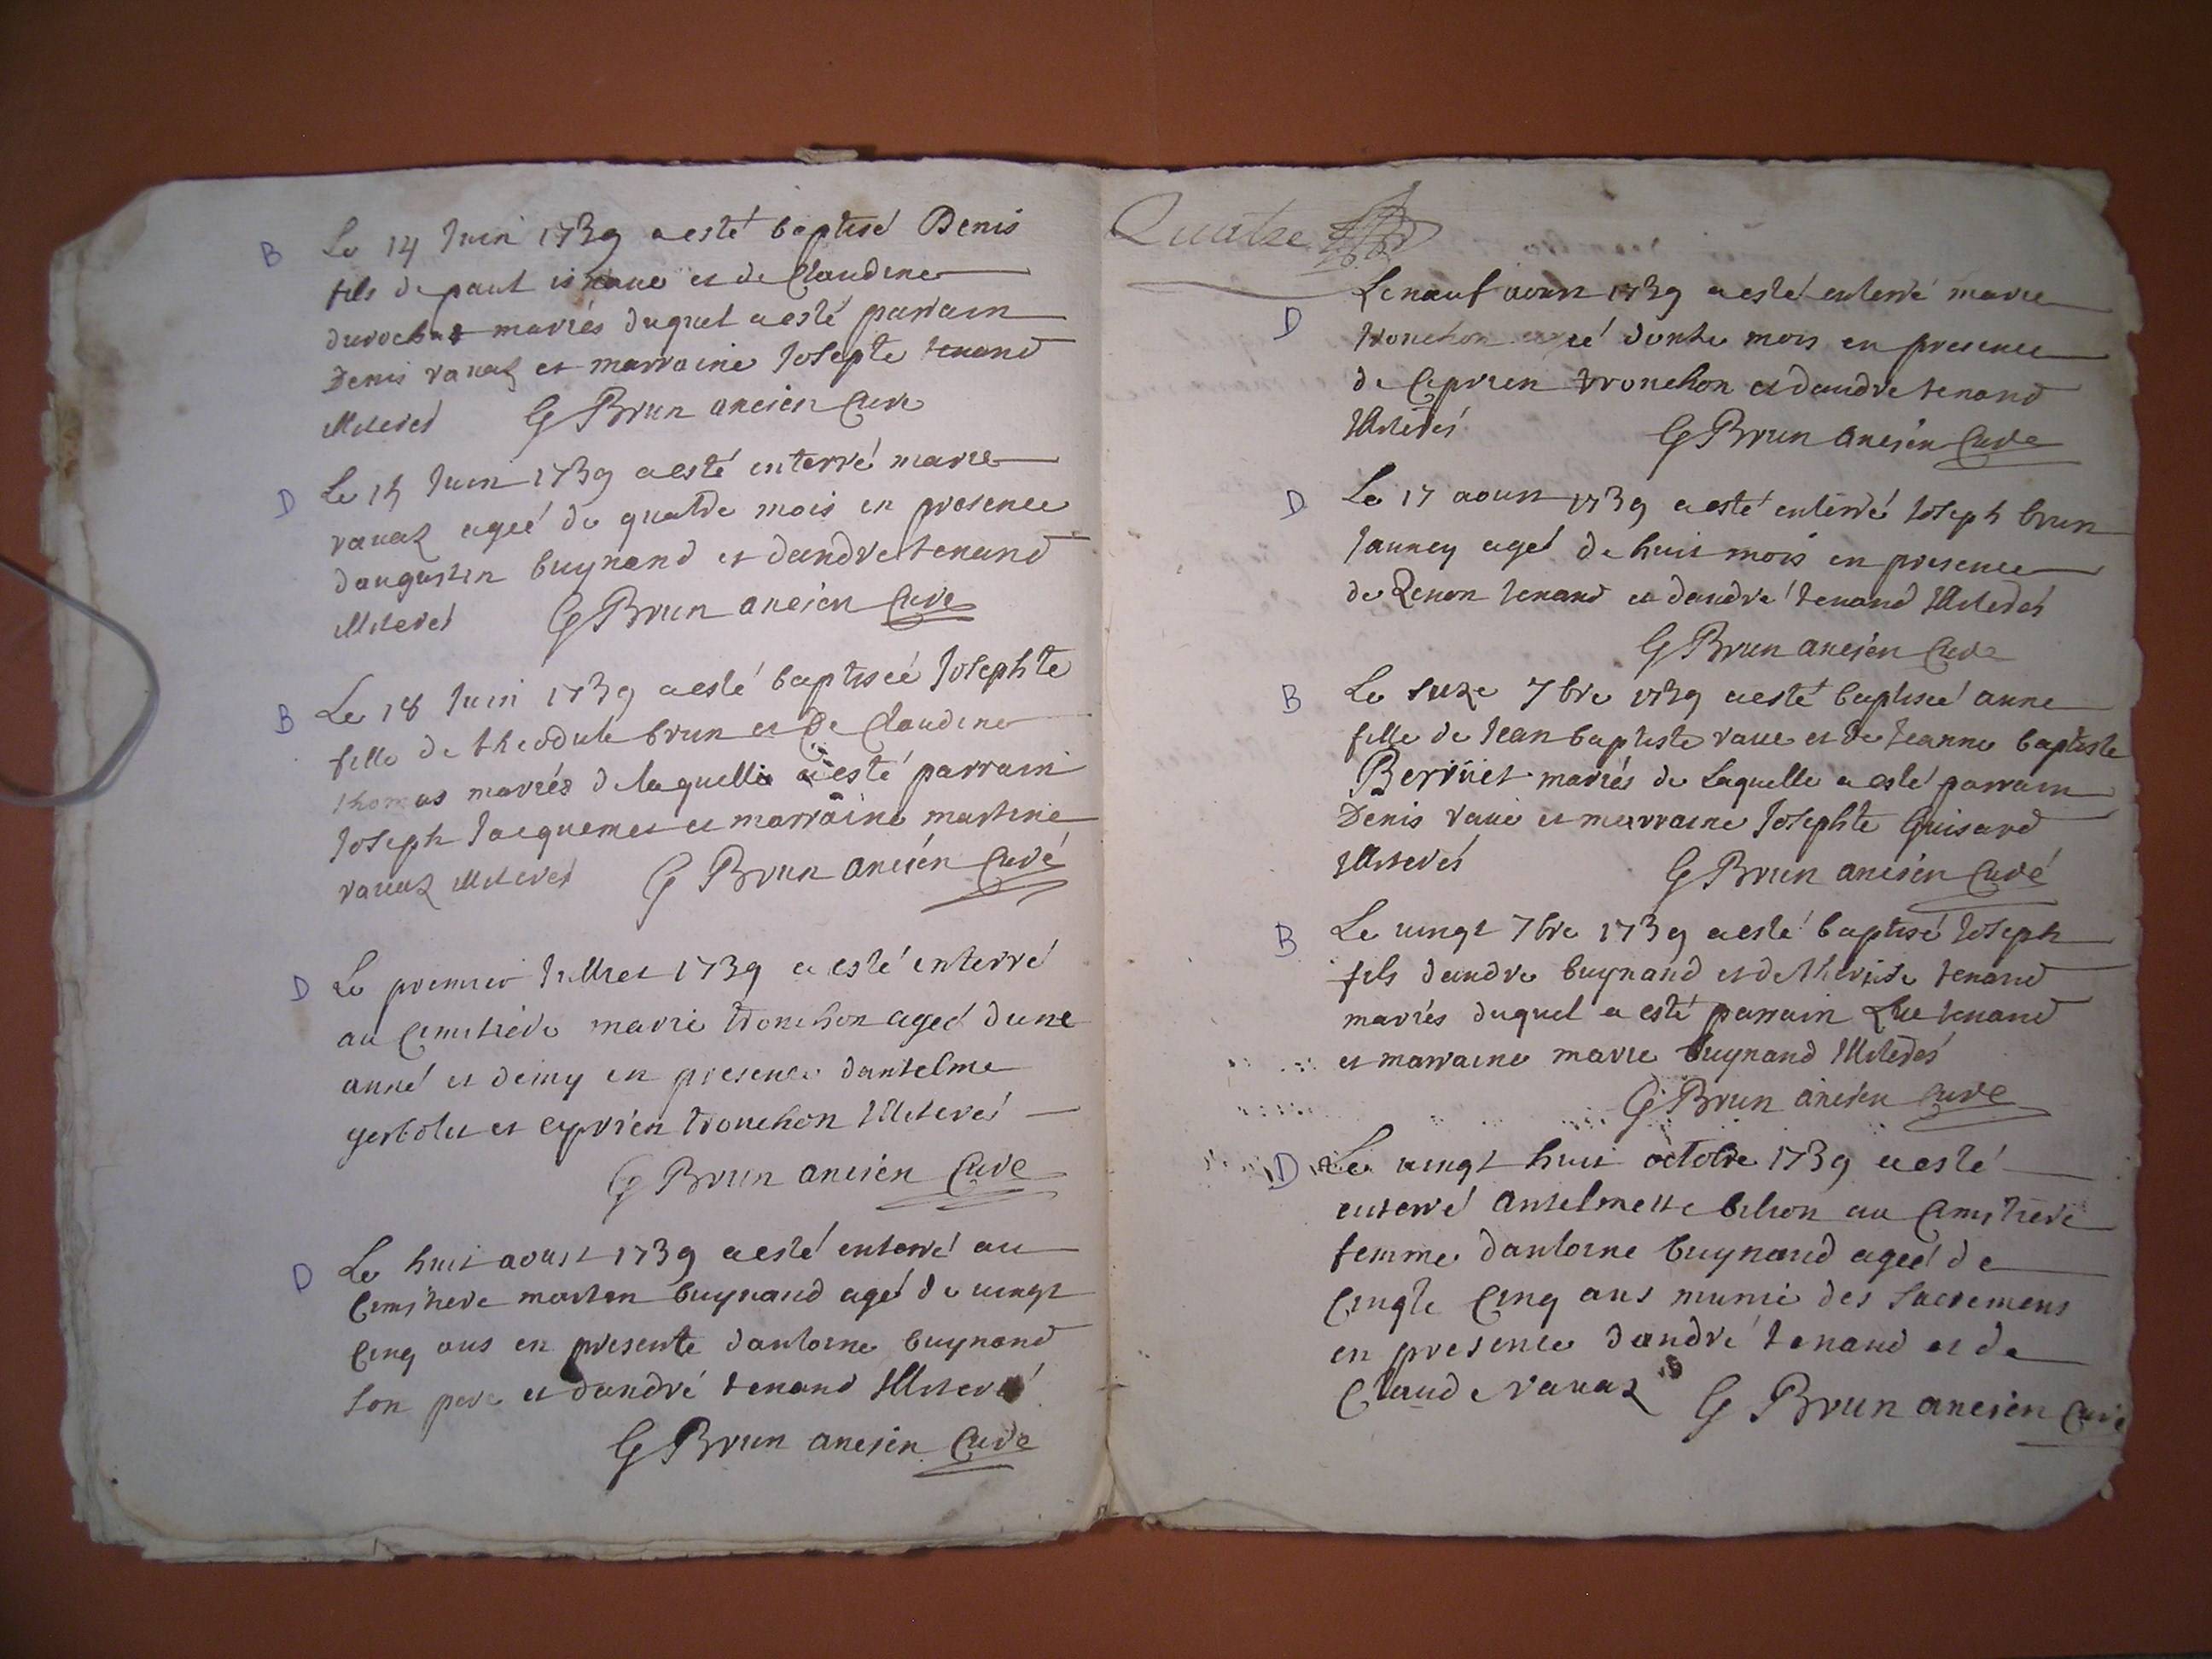 B
Le 14 Juin 1739 a esté baptisé Denis
fils de paul et de Claudine
mariés duquel a esté parrain
Denis ravaz et marraine Josepte tenand
illiterés G Brun ancien Curé
D
Le 15 Juin 1739 a esté enterré marie
ravaz ageé de quatre mois en presence
daugustin buynand et dandre tenand
illiterés G Brun ancien Curé
B
Le 18 Juin 1739 a esté baptiseé Josephte
fille de theodule brun et de Claudine
thomas mariés de laquelle a esté parrain
Joseph Jacquemet et marraine martine
ravaz illiterés G Brun ancien Curé
D
Le premier Jullret 1739 a esté enterré
au Cimitiere marie tronchon ageé dune
anné et demy en presence dantelme
gerbolet et cyprien tronchon Illiterés
G Brun ancien Curé
D
Le huit aoust 1739 a esté enterré au
Cimitiere martin buynand agé de vingt
Cinq ans en presente dantoine buynand
son pere et dandré tenand Illiterés
G Brun ancien Curé
Quatre
D
Le neuf aoust 1739 a esté enterré marie
tronchon ageé dontze mois en presence
de Ciprien tronchon et dandre tenand
Illiterés G Brun ancien Curé
D
Le 17 aoust 1739 a esté enterré Joseph brun
Janney agé de huit mois en presence
de Zenon tenand et dandré tenand Illiterés
G Brun ancien Curé
B
Le suze 7bre 1739 a esté baptiseé anne
fille de Jean baptiste rave et de Jeanne baptiste
Berruet mariés de Laquelle a esté parrain
Denis rave et marraine Josephte Guisard
Illiterés G Brun ancien Curé
B
Le vingt 7bre 1739 a esté baptisé Joseph
fils dandre buynand et de therese tenand
mariés duquel a esté parrain Luc tenand
et marraine marie buynand Illiterés
G Brun ancien Curé
D
Le vingt huit octobre 1739 a esté
enterré antelmette bilion au Cimitiere
femme dantoine buynand ageé de
Cinqte Cinq ans munie des sacremens
en presence dandré tenand et de
Claude ravaz G Brun ancien Curé